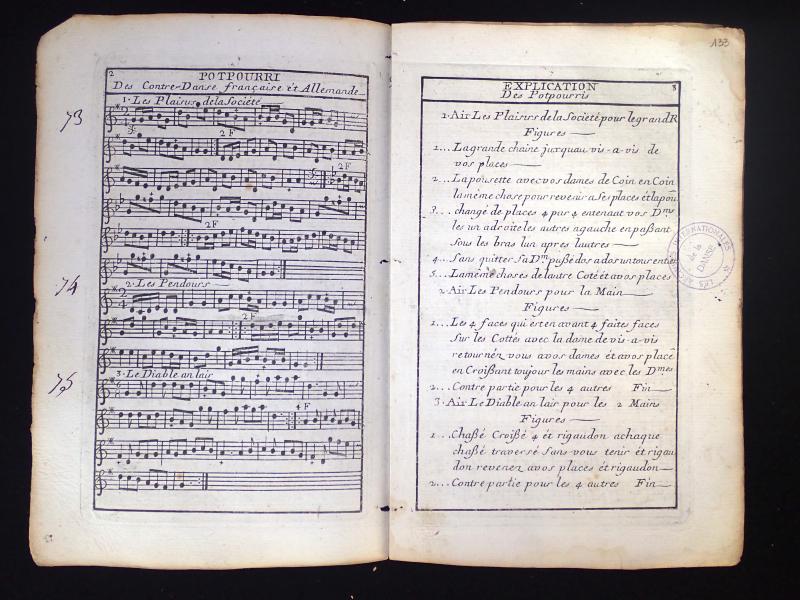 2
POTPOURRI
Des Contre-Danse française et Allemande
1. Les Plaisirs de la Société
73
2 F
2 F
2 F
74
2. Les Pendours
2 F
75
3. Le Diable an lair
4 F
133
EXPLICATION
Des Potpourris
1. Air Les Plaisirs de la Société pour le grand R
Figures
1... La grande chaine juxquau vis-a-vis de
vos places
2... La pousette avec vos dames de Coin en Coin
la même chose pour revenir a ses places ét la
3... changé de places 4 par 4 entenant vos Dmes
les un adroite les autres agauche en paßant
sous les bras lun apres lautres
4... Sans quitter sa Dme dos ados untour entier
5... La même choses de lautre Coté et avos places
2. Air Les Pendours pour la Main
Figures
1... Les 4 faces qui est en avant 4 faites faces
Sur les Cottes avec la dame de vis-a-vis
retournéz vous avos dames ét avos place
en Croißant toujour les mains avec les Dmes
2... Contre partie pour les 4 autres Fin
3. Air Le Diable an lair pour les 2 Mains
Figures
1... Chaßé Croißé 4 ét rigaudon achaque
chaßé traversé sans vous tenir ét rigau
don revenez avos places ét rigaudon
2... Contre partie pour les 4 autres Fin
INTERNATIONALES
de la
DANSE
LES